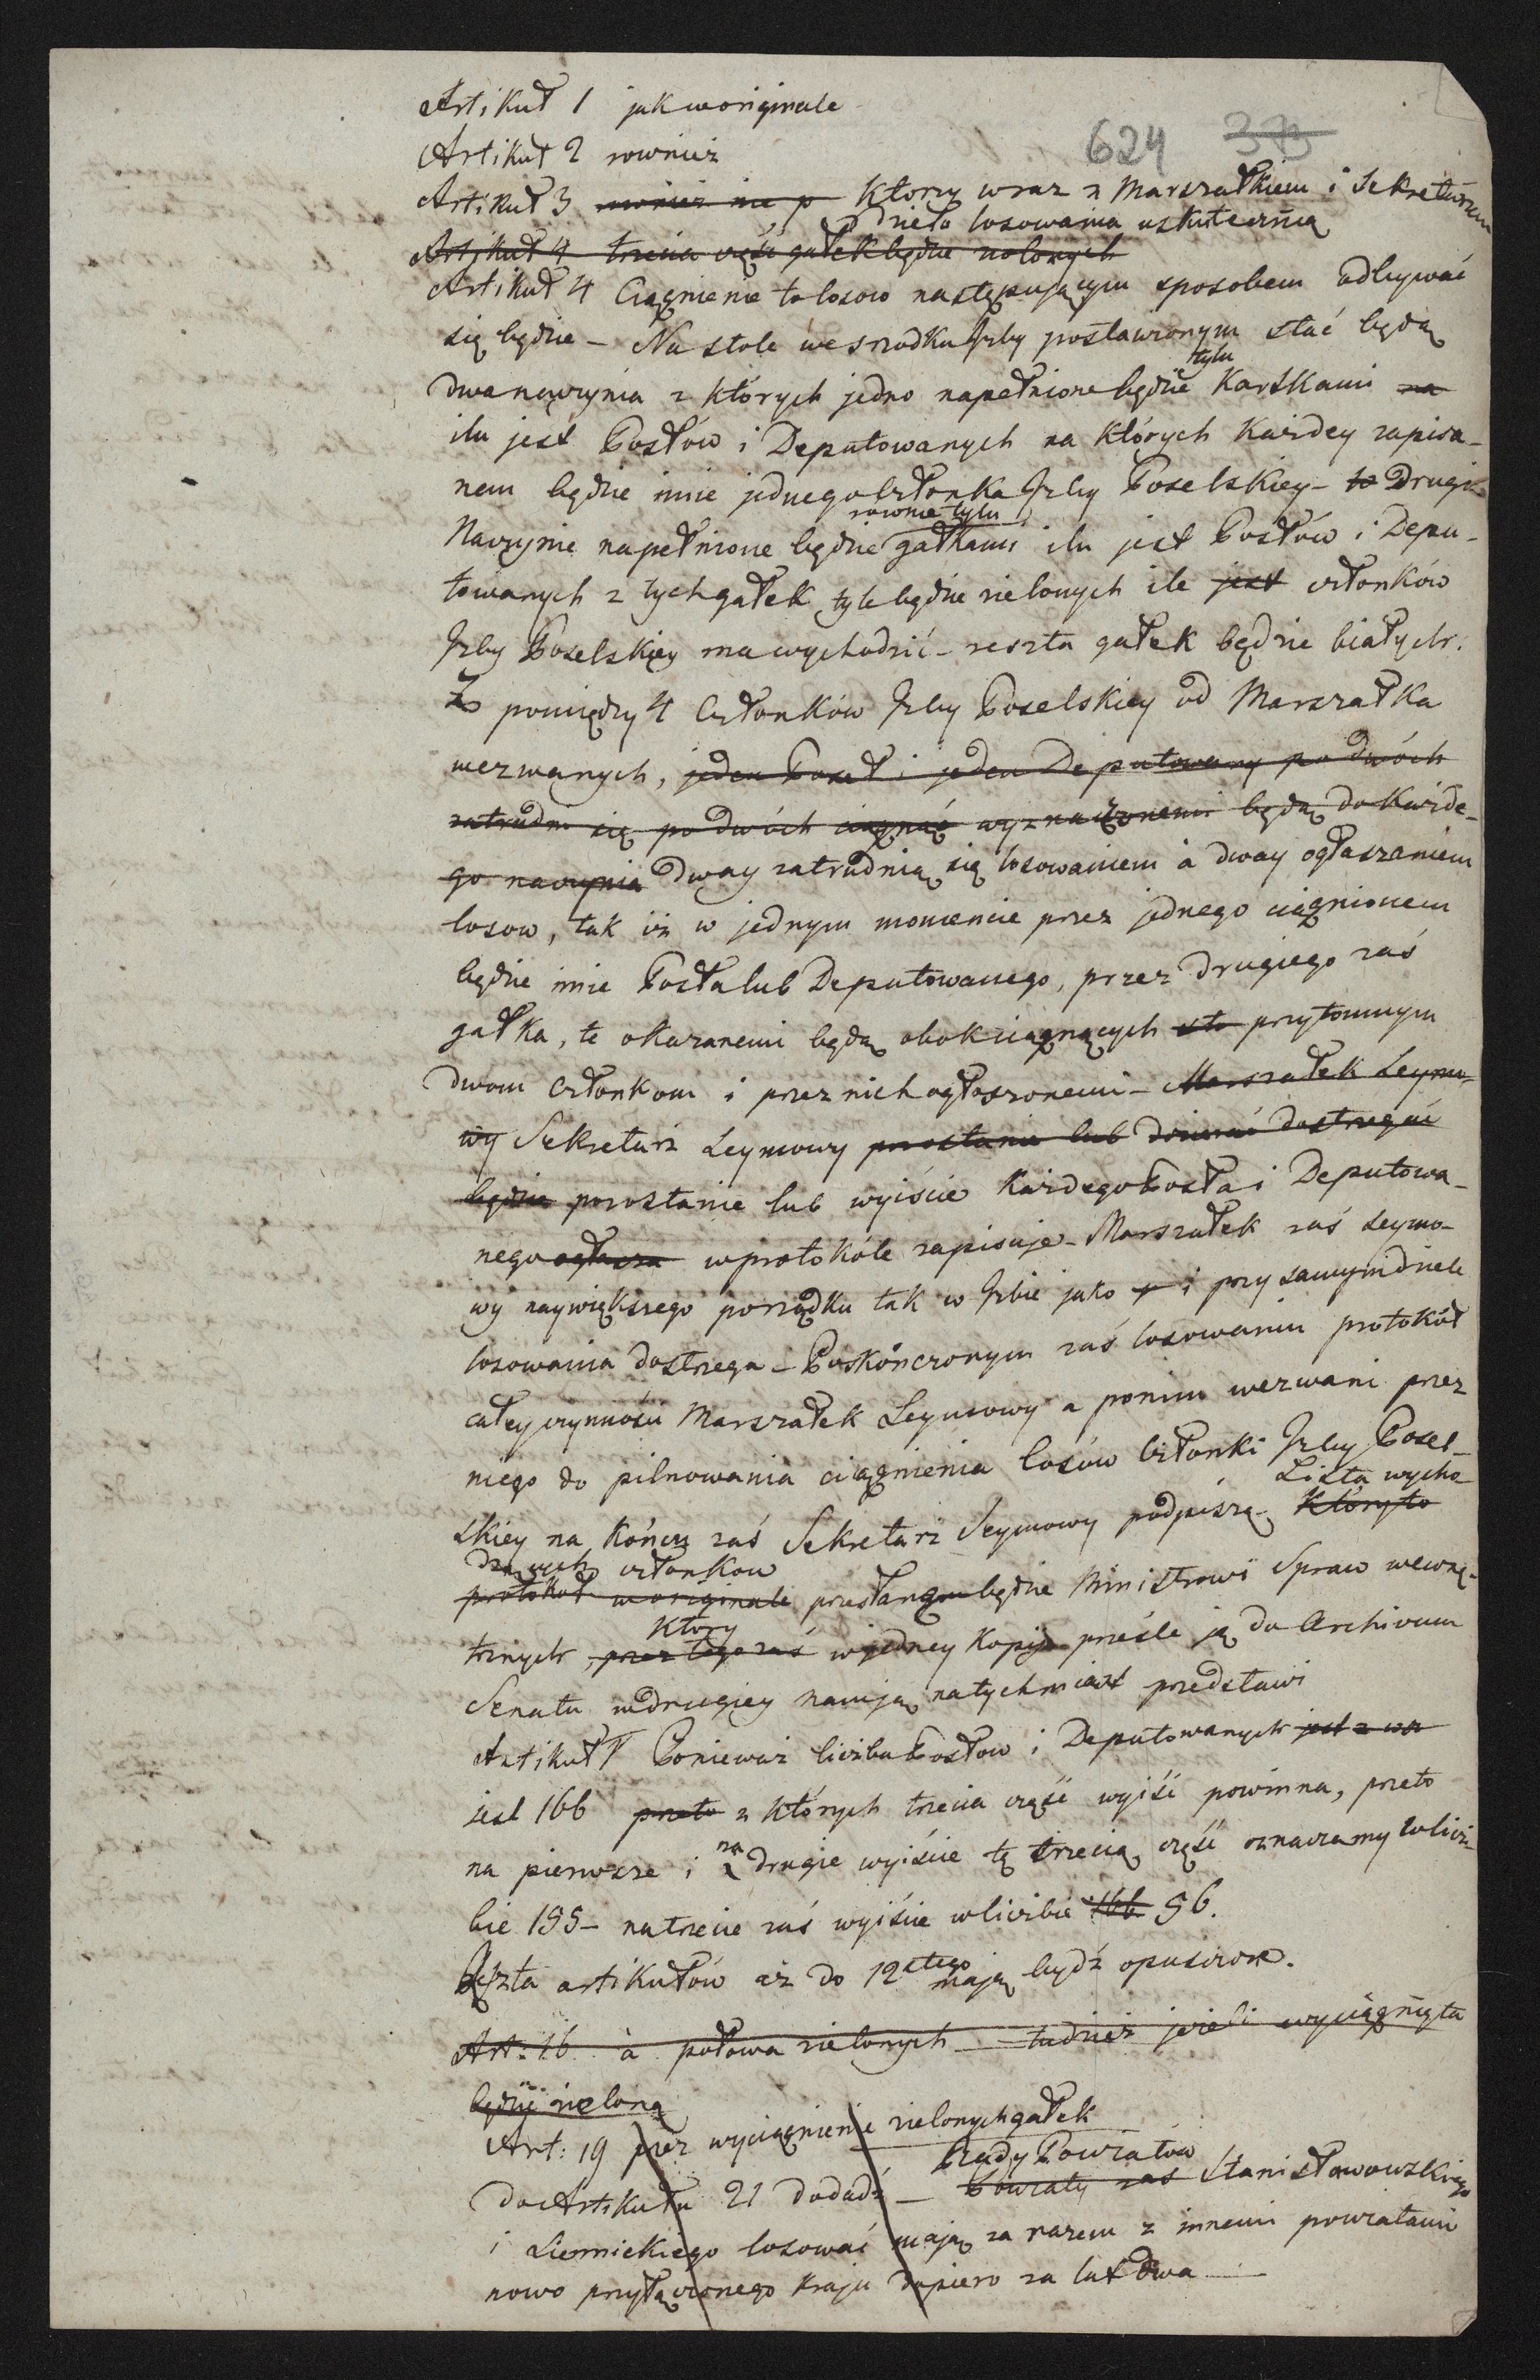 624 373
Artikuł 1 jak w originale
Artikuł 2 rownież
Artikuł 3 rownież nie p ktorzy wraz z Marszałkiem i Sekretarzem
dzieło losowania uskutecznią
Artykuł 4 trzecia część gałek będzie zielonych
Artikuł 4 Ciągnienie to losow następującym sposobem odbywać
się będzie – Na stole we srzodku Izby postawionym stać będą
dwa naczynia z których jedno napełnione będzie tylu Kartkami na
ilu jest Posłów i Deputowanych na których Każdey zapisa-
nem będzie imie jednego Członka Izby Poselskiey – to Drugie
Naczynie napełnione będzie rownie tylu gałkami ilu jest Posłów i Depu-
towanych z tych gałek tyle będzie zielonych ile jest członków
Izby Poselskiey ma wychodzić – reszta gałek będzie białych.
Z pomiędzy 4 Członków Izby Poselskiey od Marszałka
wezwanych, jeden Poseł i jeden Deputowany po dwóch
zatrudni się po dwóch ciągnąć wyznaczonemi będą do Każde-
go naczynia dway zatrudnią się losowaniem a dway ogłaszaniem
losow, tak iż w jednym momencie przez jednego ciągnionem
będzie imie Posła lub Deputowanego, przez drugiego zaś
gałka, te okazanemi będą obok ciągnących sto przytomnym
dwom członkom i przez nich ogłoszonemi – Marszałek Seymo-
wy Sekretarz Seymowy pozostanie lub dozierać dostrzegać
będzie pozostanie lub wyiście Każdego Posła i Deputowa-
nego ogłasza w protokóle zapisuje – Marszałek zaś Seymo-
wy naywiększego porządku tak w Izbie jako p i przy samym dziele
losowania dostrzega – Po skończonym zaś losowaniu protokół
całey czynności Marszałek Seymowy a po nim wezwani przez
niego do pilnowania ciągnienia losów Członki Izby Posel-
skiey na końcu zaś Sekretarz Seymowy podpiszą – Któryto Lista wycho-
dzących członkow
protokół w originale przesłanym będzie Ministrowi Spraw wewnę-
trznych, przez tego zaś który w jedney Kopij prześle ją do Archivum
Senatu w drugiey nam ją natychmiast przedstawi
Artikuł 5 Ponieważ liczba Posłow i Deputowanych jest z wsz
jest 166 przeto z których trzecia część wyiść powinna, przeto
na pierwsze i na drugie wyiście tę trzecią część oznaczamy w licz-
bie 155 – na trzecie zaś wyiście w liczbie 166 56.
Reszta artikułów aż do 12stego mają bydź opuszczone.
Art: 16 a połowa zielonych – tudzież jeżeli wyciągnięta
będzie zieloną
Art: 19 przez wyciągnienie zielonych gałek
do Artikułu 21 dodadź – Powiaty zaś Rządy Powiatów Stanisławowskiego
i Siennickiego losować mają za razem z innemi powiatami
nowo przyłączonego Kraju dopiero za lat dwa